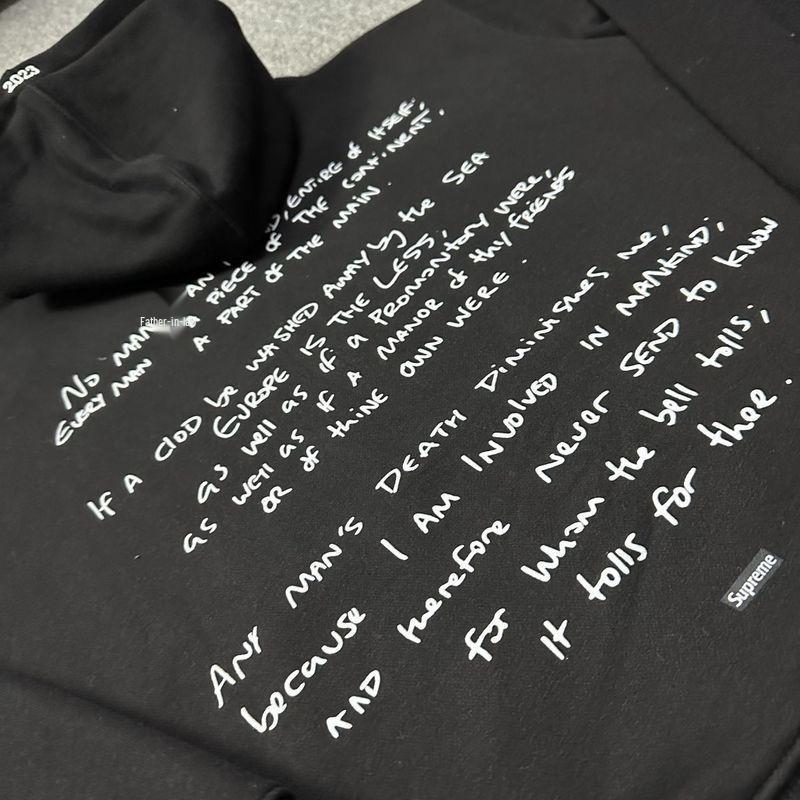 2023
AN D, ENTIRE of ITSELF.
A PIECE OF THE CONTINENT,
A PART OF THE MAIN.
NO MAN
EVERY MAN
Father-in-law
If A CLOD be WASHED AWAY by the SEA
EUROPE IS THE LESS,
as well as if a PROMONTORY WERE,
as well as IF A MANOR of thy FRIENDS
OR of thine OWN WERE.
ANY MAN'S DEATH Diminishes me,
because I AM INVOLVED IN MANKIND;
AND therefore Never SEND to KNOW
for Whom the bell tolls;
It tolls for thee.
Supreme